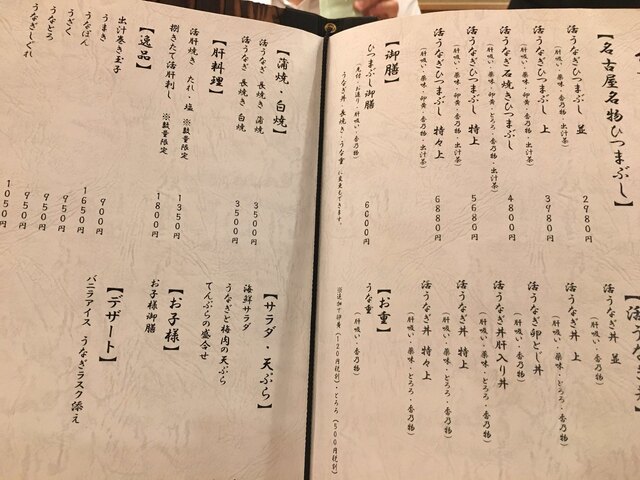 【名古屋名物ひつまぶし】
活うなぎひつまぶし 並
(肝吸い・薬味・香乃物・出汁茶)
2980円
活うなぎひつまぶし 上
(肝吸い・薬味・卵黄・香乃物・出汁茶)
3980円
活うなぎ石焼きひつまぶし
(肝吸い・薬味・卵黄・とろろ・香乃物・出汁茶)
4800円
活うなぎひつまぶし 特上
(肝吸い・薬味・卵黄・香乃物・出汁茶)
5680円
活うなぎひつまぶし 特々上
(肝吸い・薬味・卵黄・香乃物・出汁茶)
6880円
【御膳】
ひつまぶし御膳
(先付・お造り・肝吸い・香乃物)
うなぎ丼・長焼き・うな重に変更もできます。
6000円
活うなぎ丼 並
(肝吸い・香乃物)
活うなぎ丼 上
(肝吸い・薬味・とろろ・香乃物)
活うなぎ卵とじ丼
(肝吸い・香乃物)
活うなぎ丼肝入り丼
(肝吸い・薬味・とろろ・香乃物)
活うなぎ丼 特上
(肝吸い・薬味・とろろ・香乃物)
活うなぎ丼 特々上
(肝吸い・薬味・とろろ・香乃物)
【お重】
うな重
(肝吸い・香乃物)
※追加で卵黄(120円税別)・とろろ(500円税別)
【蒲焼・白焼】
活うなぎ 長焼き 蒲焼
3500円
活うなぎ 長焼き 白焼
3500円
【肝料理】
活肝焼き たれ・塩 ※数量限定
1350円
捌きたて活肝刺し ※数量限定
1800円
【逸品】
出汁巻き玉子
900円
うまき
1650円
うなぽん
950円
うざく
950円
うなとろ
950円
うなぎしぐれ
1050円
【サラダ・天ぷら】
海鮮サラダ
うなぎと梅肉の天ぷら
てんぷらの盛合せ
【お子様】
お子様御膳
【デザート】
バニラアイス うなぎラスク添え